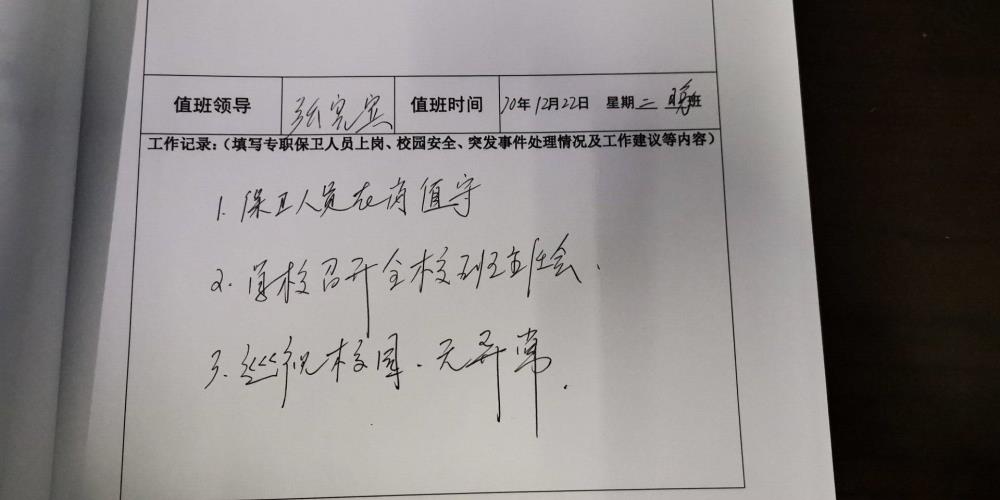 值班领导 张完宾 值班时间 20年12月22日 星期二 晚班
工作记录:(填写专职保卫人员上岗、校园安全、突发事件处理情况及工作建议等内容)
1.保卫人员在岗值守
2.学校召开全校班主任会.
3.巡视校园.无异常.